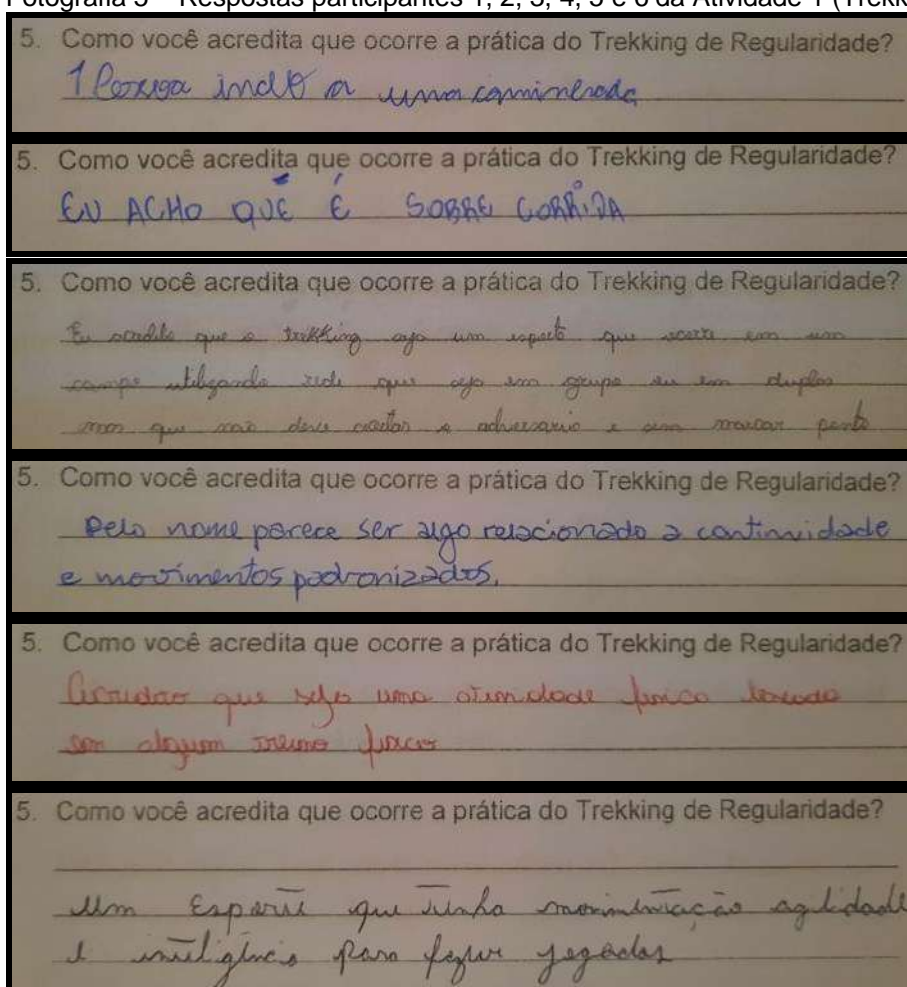 Fotografia 3 – Respostas participantes 1, 2, 3, 4, 5 e 6 da Atividade 1 (Trekk
5. Como você acredita que ocorre a prática do Trekking de Regularidade?
1 indo a uma caminhada
5. Como você acredita que ocorre a prática do Trekking de Regularidade?
EU ACHO QUE É SOBRE CORRIDA
5. Como você acredita que ocorre a prática do Trekking de Regularidade?
Eu acredito que o trekking um esporte que ocorre em um
campo utilizando rede que em grupo ou em duplas
mas que não deve o adversario e sem marcar ponto
5. Como você acredita que ocorre a prática do Trekking de Regularidade?
Pelo nome parece ser algo relacionado a continuidade
e movimentos padronizados.
5. Como você acredita que ocorre a prática do Trekking de Regularidade?
que seja uma atividade física
em algum treino
5. Como você acredita que ocorre a prática do Trekking de Regularidade?
Um que tinha movimentação agilidade
e para jogadas